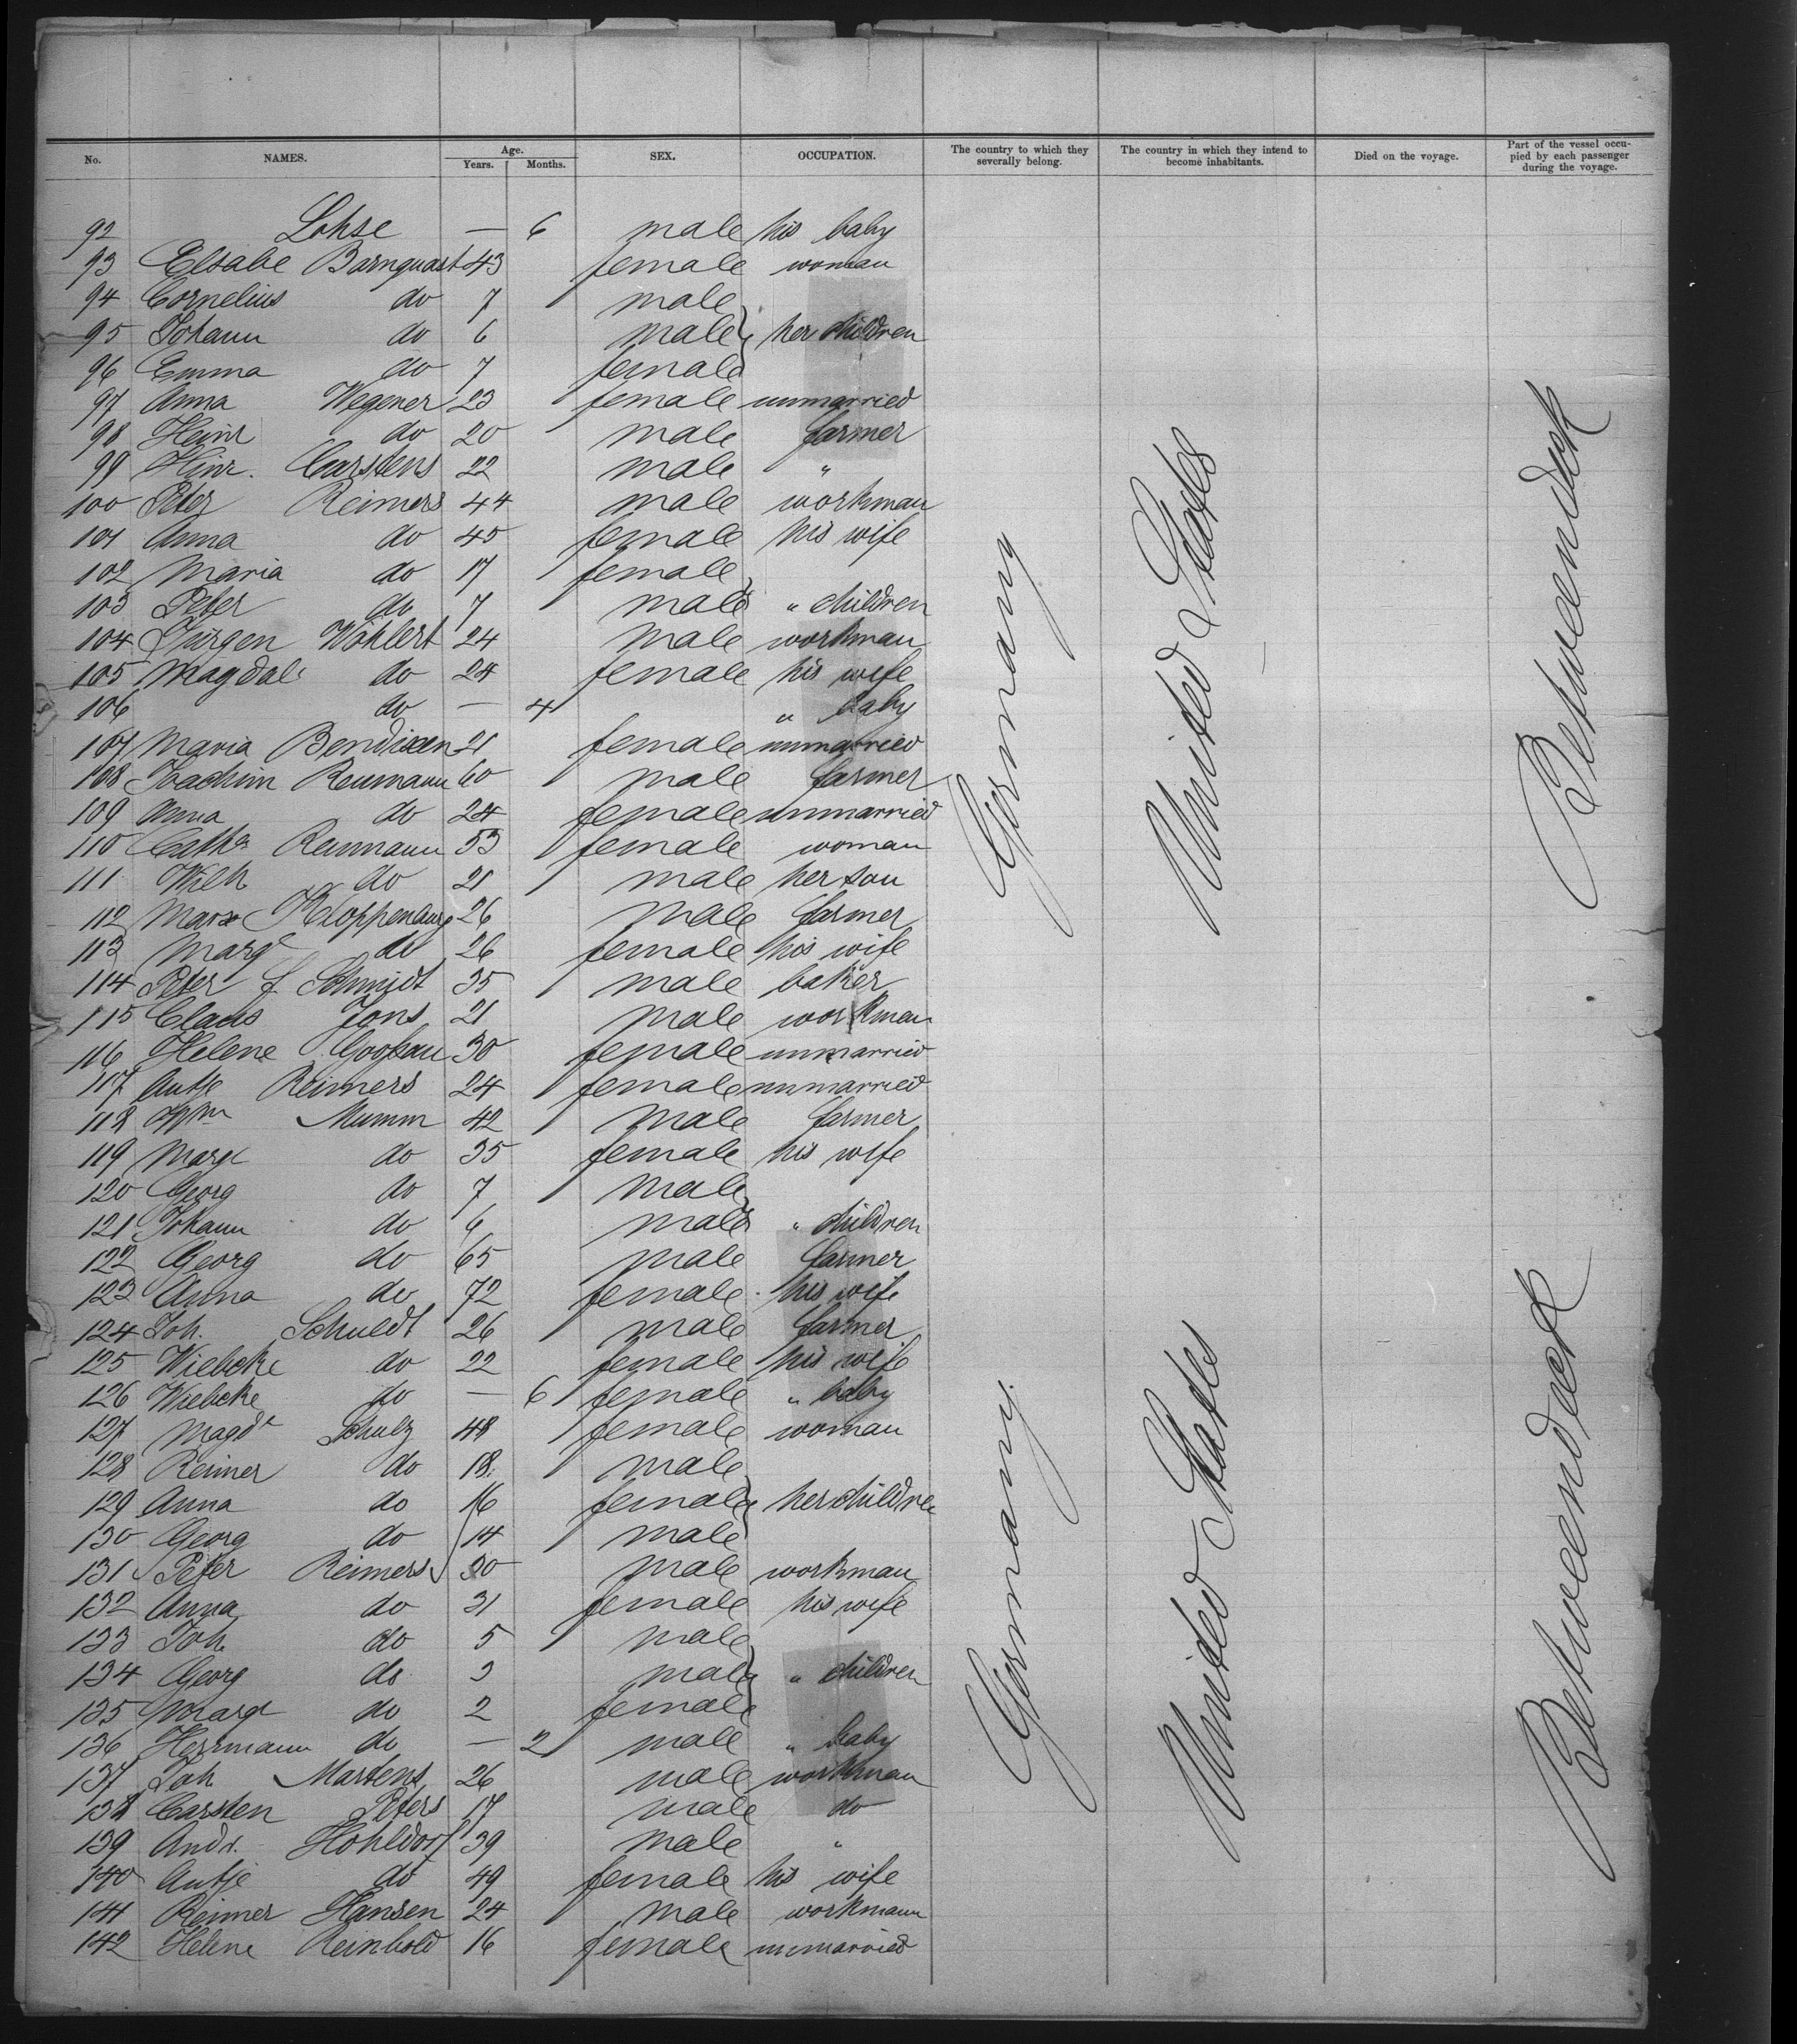 No. NAMES. Age. Years. Months. SEX. OCCUPATION. The country to which they severally belong. The country in which they intend to become inhabitants. Died on the voyage. Part of the vessel occupied by each passenger during the voyage.
92 Lohse — 6 male his baby
93 Elsabe Barnquast 43 female woman
94 Cornelius do 7 male
95 Johann do 6 male her children
96 Emma do 7 female
97 Anna Wegener 23 female unmarried
98 Heinr do 20 male farmer
99 Hinr. Carstens 22 male "
100 Peter Reimers 44 male workman
101 Anna do 45 female his wife
102 Maria do 17 female
103 Peter do 7 male " children
104 Jürgen Wöhlert 24 male workman
105 Magdal. do 24 female his wife
106 do — 4 " baby
107 Maria Bendixen 21 female unmarried
108 Joachim Reumann 60 male farmer
109 Anna do 24 female unmarried
110 Catha Reumann 53 female woman
111 Wilh do 21 male her son
112 Marx Kloppenburg 26 male farmer
113 Marg do 26 female his wife
114 Peter J. Schmidt 35 male baker
115 Claus Jöns 21 male workman
116 Helene 30 female unmarried
117 Antje Reimers 24 female unmarried
118 Wm Mumm 42 male farmer
119 Marg do 35 female his wife
120 Georg do 7 male
121 Johann do 6 male " children
122 Georg do 65 male farmer
123 Anna do 72 female his wife
124 Joh. Schuldt 26 male farmer
125 Wiebcke do 22 female his wife
126 Wiebcke do — 6 female " baby
127 Magda Schulz 48 female woman
128 Reimer do 18 male
129 Anna do 16 female her children
130 Georg do 14 male
131 Peter Reimers 30 male workman
132 Anna do 31 female his wife
133 Joh. do 5 male
134 Georg do 3 male " children
135 Marg do 2 female
136 Herrmann do — 2 male " baby
137 Joh Martens 26 male workman
138 Carsten Peters 17 male do
139 Andr. Hohldorf 39 male "
140 Antje do 49 female his wife
141 Reimer Hansen 24 male workmann
142 Helene Reinbold 16 female unmarried
Germany
United States
Betweendeck
Germany.
United States
Betweendeck